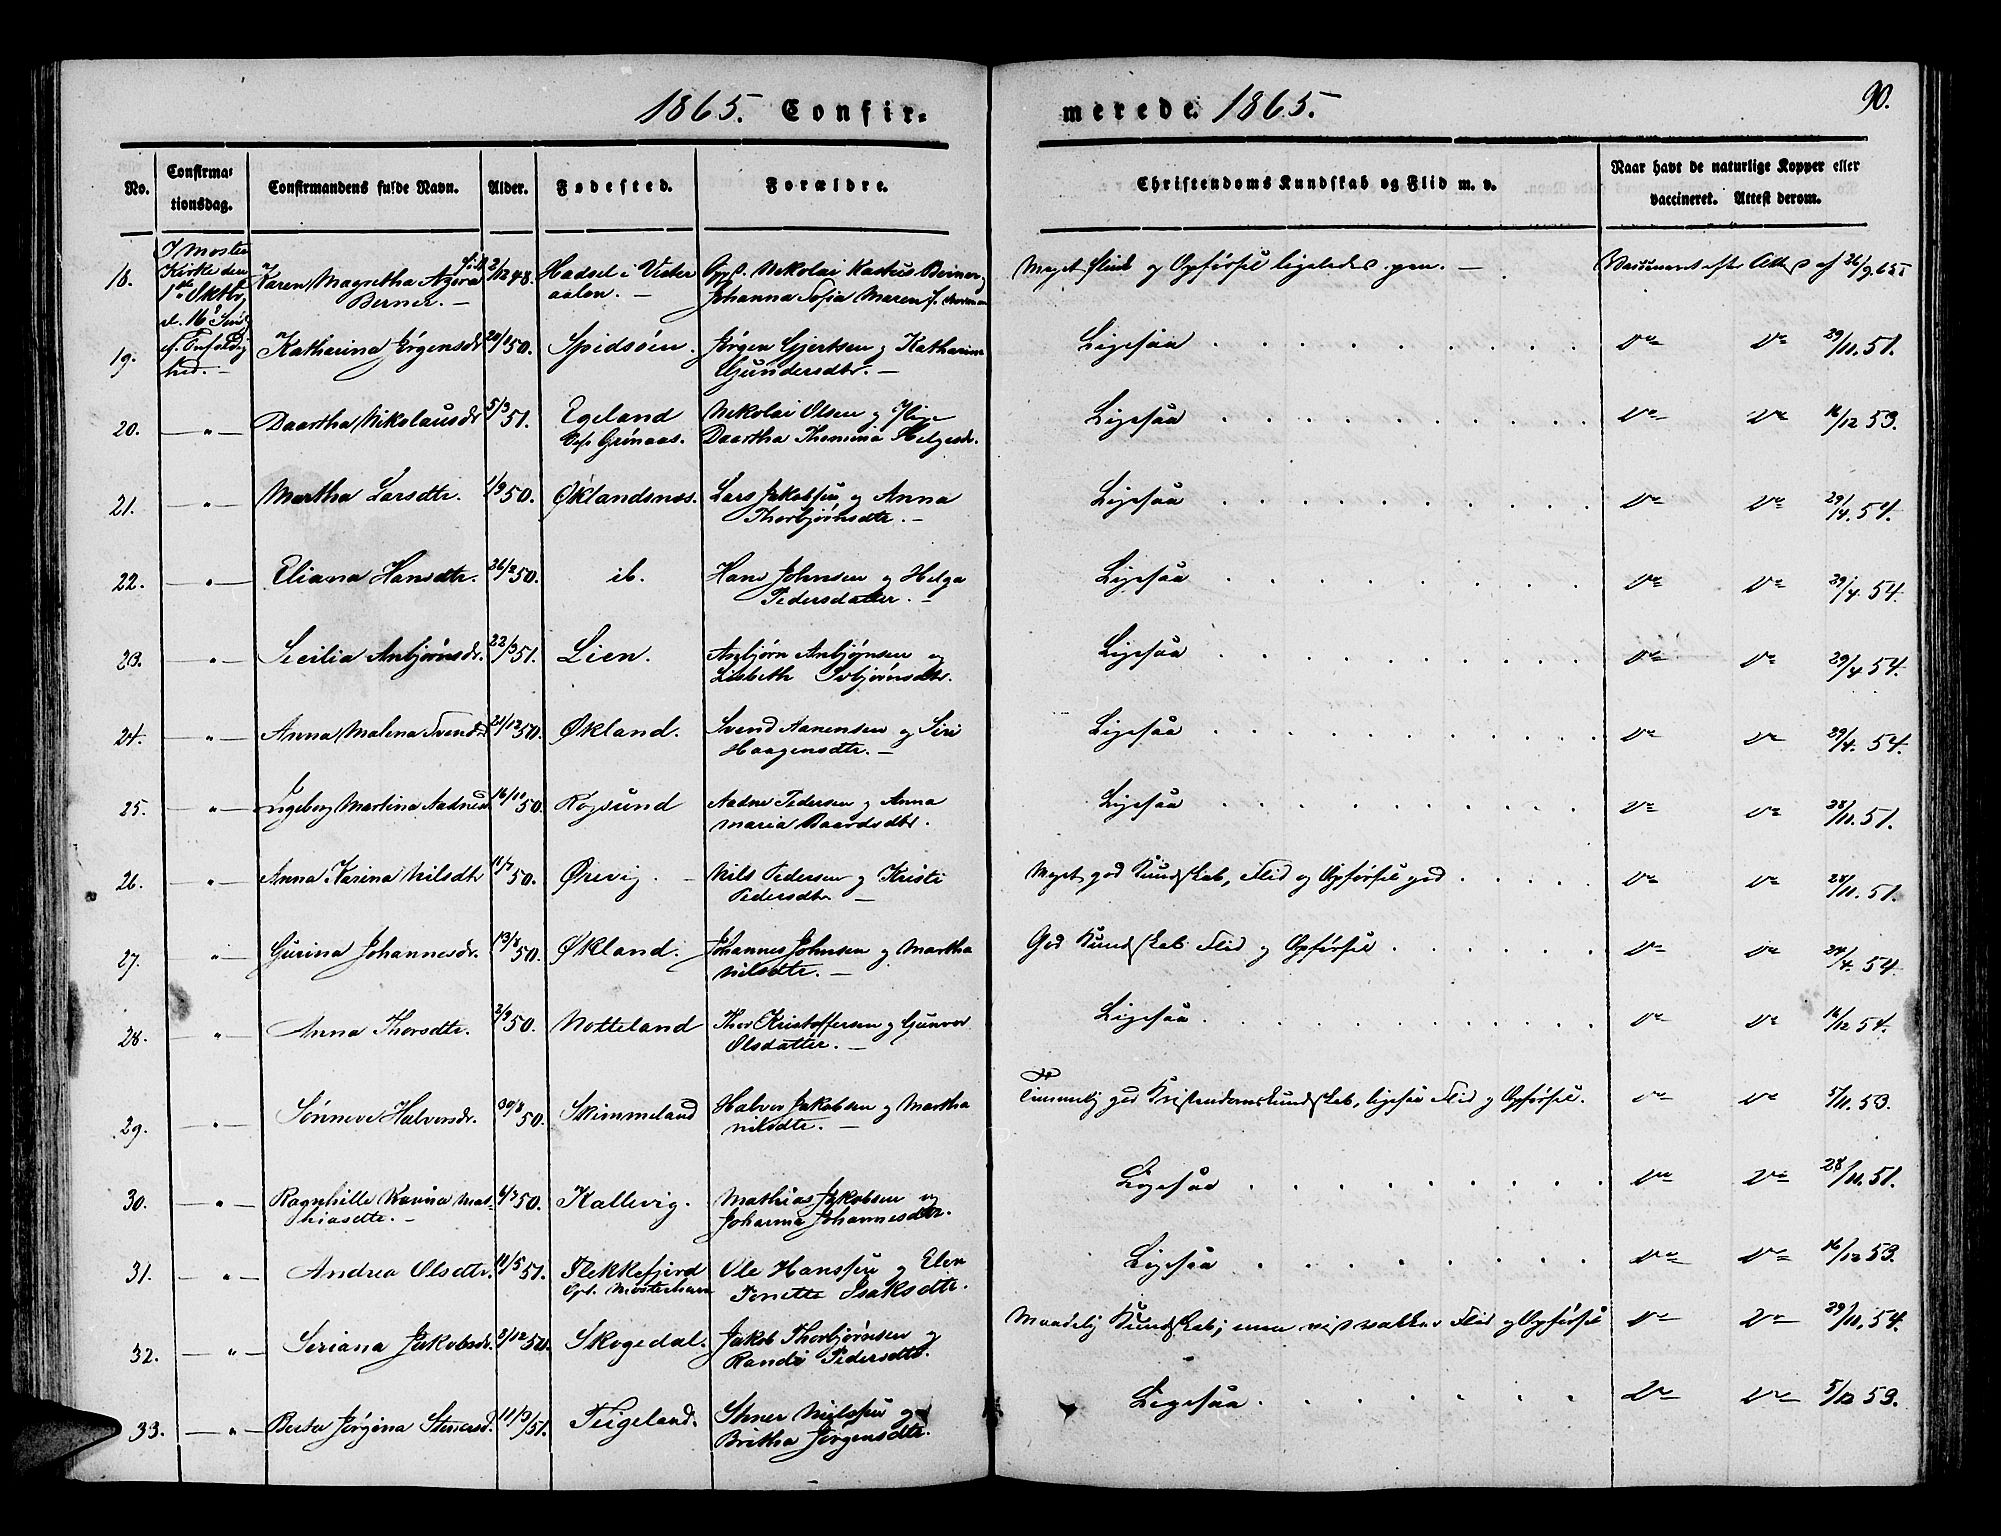 1865. Confir-
merede 1865.
90.
No.
Confirma-
tionsdag.
Confirmandens fulde Navn.
Alder.
Fødested.
Forældre.
Christendoms Kundskab og Flid m. v.
Naar havt de naturlige Kopper eller
vaccineret. Attest derom.
I Moster
Kirke den
1ste Oktbr
hed.
18. Karen Magretha 2/12 48. Hadsel i Vester Nikolai Berner
Berner. aalen. Johanna Sofia Maren
Meget Flink og Opførsel ligeledes
Vaccineret efter Attest af 26/9 65
19. Katharina Jørgensdr 50. Spidsøen. Jørgen Gjertsen og Katharina
Gundersdtr.
Ligesaa do do 29/11. 51.
20. " Daartha Nikolausdr 5/3 51. Egeland Nikolai Olsen og
Grønaas. Daartha Helgesdr.
Ligesaa do do 16/12 53.
21. " Martha Larsdtr. 1/9 50. Øklandsnes. Lars Jakobsen og Anna
Thorbjørnsdtr.
Ligesaa do do 29/4. 54.
22. " Eliana Hansdtr. 26/2 50. ib. Hans Johnsen og Helga
Pedersdatter.
Ligesaa do do 29/4. 54.
23. " Secilia Anbjørnsdr. 22/3 51. Lien. Anbjørn Anbjørnsen og
Lisbeth
Ligesaa do do 29/4 54.
24. " Anna Malena Svendsd 21/12 50. Økland. Svend Aanensen og Siri
Haagensdtr.
Ligesaa do do 29/4. 54.
25. " Ingeborg Martina Aadnesd 16/11 50. Røgsund Aadne Pedersen og Anna
Maria Baardsdtr.
Ligesaa do do 28/11. 51.
26. " Anna Karina Nilsdtr 11/7 50. Ørevig. Nils Pedersen og Kristi
Pedersdtr
Meget god Kundskab, Flid og Opførsel god do do 28/11. 51.
27. " Gurina Johannesdr. 13/8 50. Økland. Johannes Johnsen og Martha
Nilsdtr.
God Kundskab Flid og Opførsel do do 29/4. 54
28. " Anna Thorsdtr. 2/9 50. Notteland Thor Kristoffersen og Gunvor
Olsdatter.
Ligesaa do do 16/12 54.
29. " Sønneve Halversdr. 30/8 50. Skimmeland Halvor Jakobsen og Martha
Nilsdtr.
Temmelig god Kristendomskundskab, ligesaa Flid og Opførsel. do do 5/11. 53.
30. " Ragnhille Karina Mat- 4/7 50. Kallevig. Mathias Jakobsen og
hiasdtr. Johanna Johannesdtr.
Ligesaa do do 28/11. 51.
31. " Andrea Olsdtr. 11/5 51. Flekkefjord Ole Hanssen og Elen
Opl. Mosterhavn Tonette Isaksdtr.
Ligesaa do do 16/12 53.
32. " Seriana Jakobsdr. 2/12 50. Skogedal. Jakob Thorbjørnsen og
Randi Pedersdtr.
Maadelig Kundskab; men vist vakker Flid og Opførsel do do 29/11. 54.
33. " Berta Jørgina Stenersd. 11/3/51. Teigeland. Stener Nielssen og
Britha Jørgensdtr.
Ligesaa do do 5/12 53.